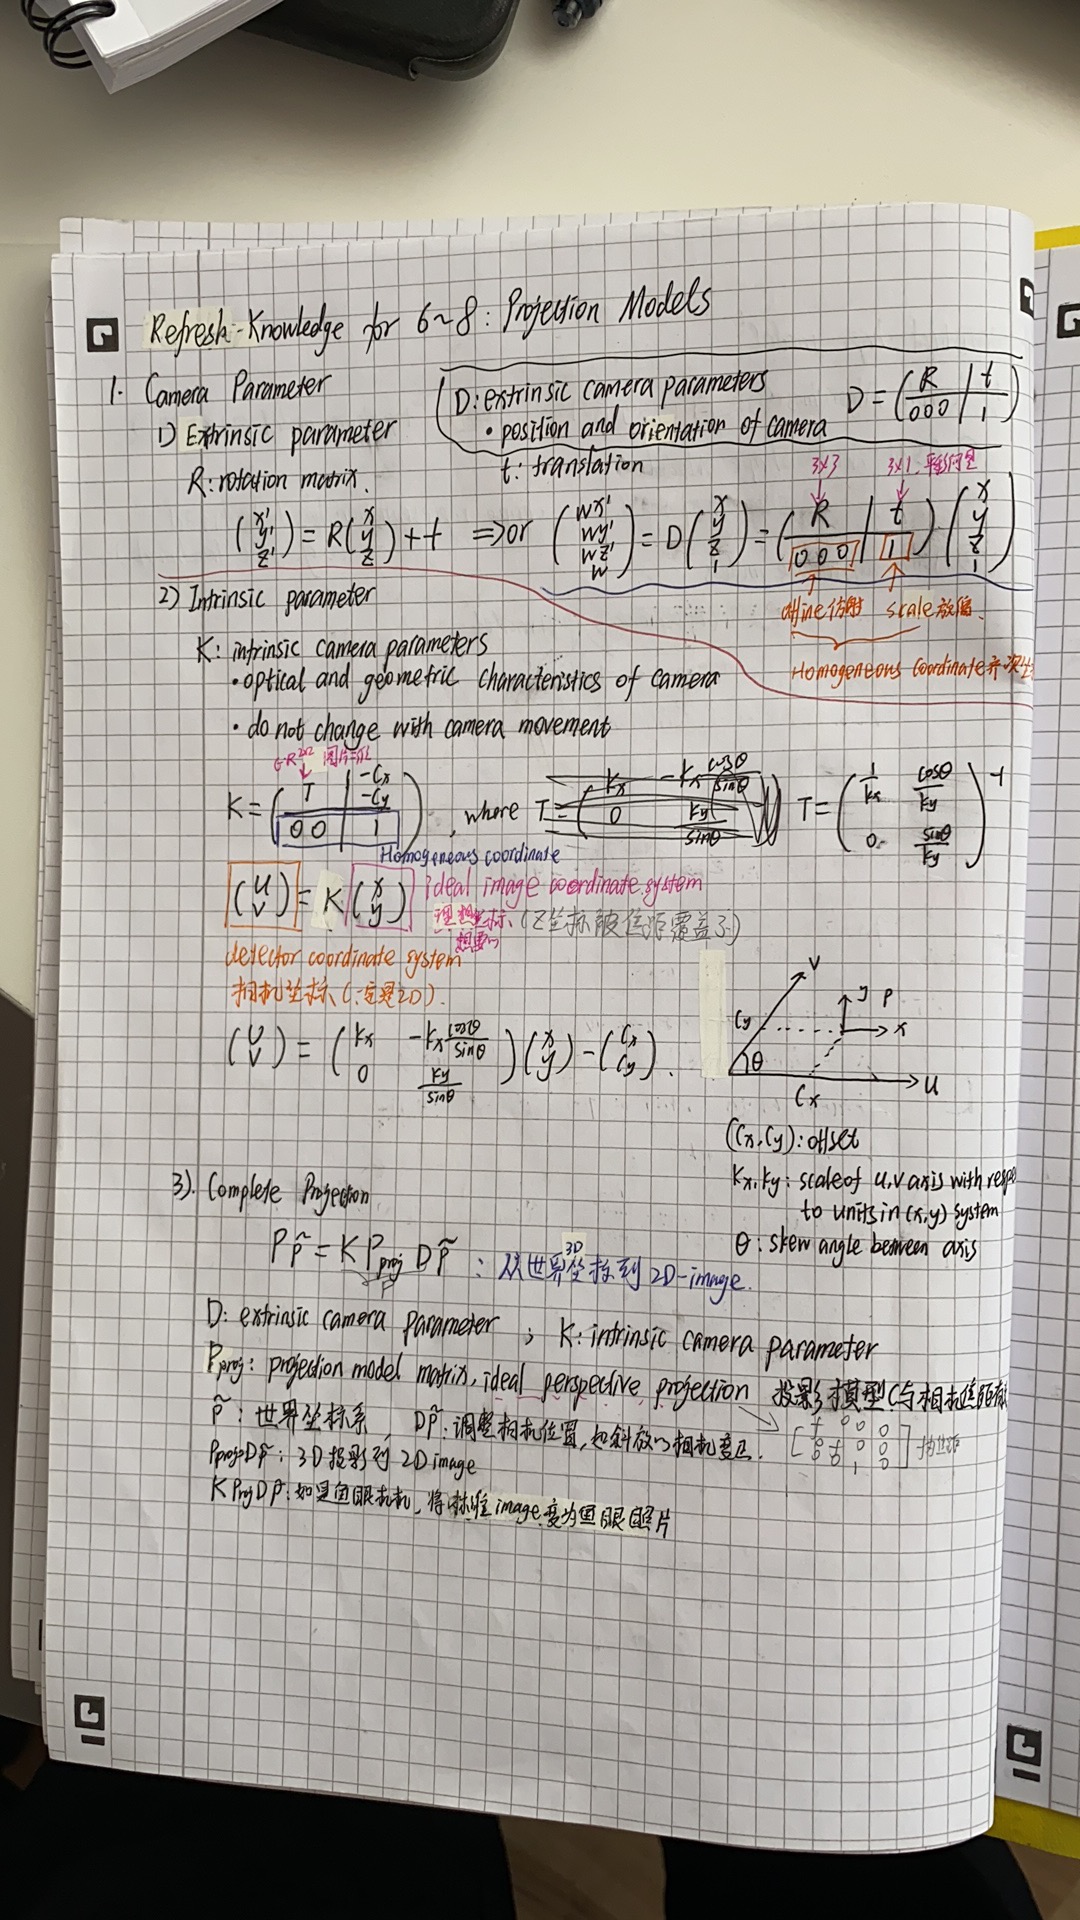 Refresh-Knowledge for 6~8: Projection Models
1. Camera Parameter
D: extrinsic camera parameters
• position and orientation of camera
D = (R | t / 000 | 1)
1) Extrinsic parameter
R: rotation matrix.
t: translation
3×3
3×1
(x' y' z') = R (x y z) + t ⇒ or (wx' wy' wz' w) = D (x y z 1) = (R | t / 000 | 1) (x y z 1)
affine 仿射 scale 放缩
Homogeneous coordinate 齐次坐
2) Intrinsic parameter
K: intrinsic camera parameters
• optical and geometric characteristics of camera
• do not change with camera movement
∈R²ˣ²
K = (T | -Cx -Cy / 0 0 | 1), where T = (1/kx cosθ/ky / 0 sinθ/ky)⁻¹
Homogeneous coordinate
(u v) = K (x y) ideal image coordinate system
理想坐标 (Z坐标被焦距覆盖了)
想要的
detector coordinate system
相机坐标 (一定是2D).
(u v) = (kx -kx cosθ/sinθ / 0 ky/sinθ) (x y) - (Cx Cy).
V
y P
Cy x
θ
Cx u
(Cx, Cy): offset
kx, ky: scale of u,v axis with respe
to units in (x,y) system
θ: skew angle between axis
3). Complete Projection
P p̃ = K Pproj D p̃ : 从世界坐标到 2D-image.
3D
P
D: extrinsic camera parameter ; K: intrinsic camera parameter
Pproj: projection model matrix, ideal perspective projection 投影模型 (与相机焦距有
p̃: 世界坐标系, Dp̃: 调整相机位置, 把斜放的相机变正.
[f 0 0 0 / 0 f 0 0 / 0 0 1 0] f为焦距
PprojDp̃: 3D投影到 2D image
KProjDp̃: 如果是鱼眼相机, 将标准image变为鱼眼照片